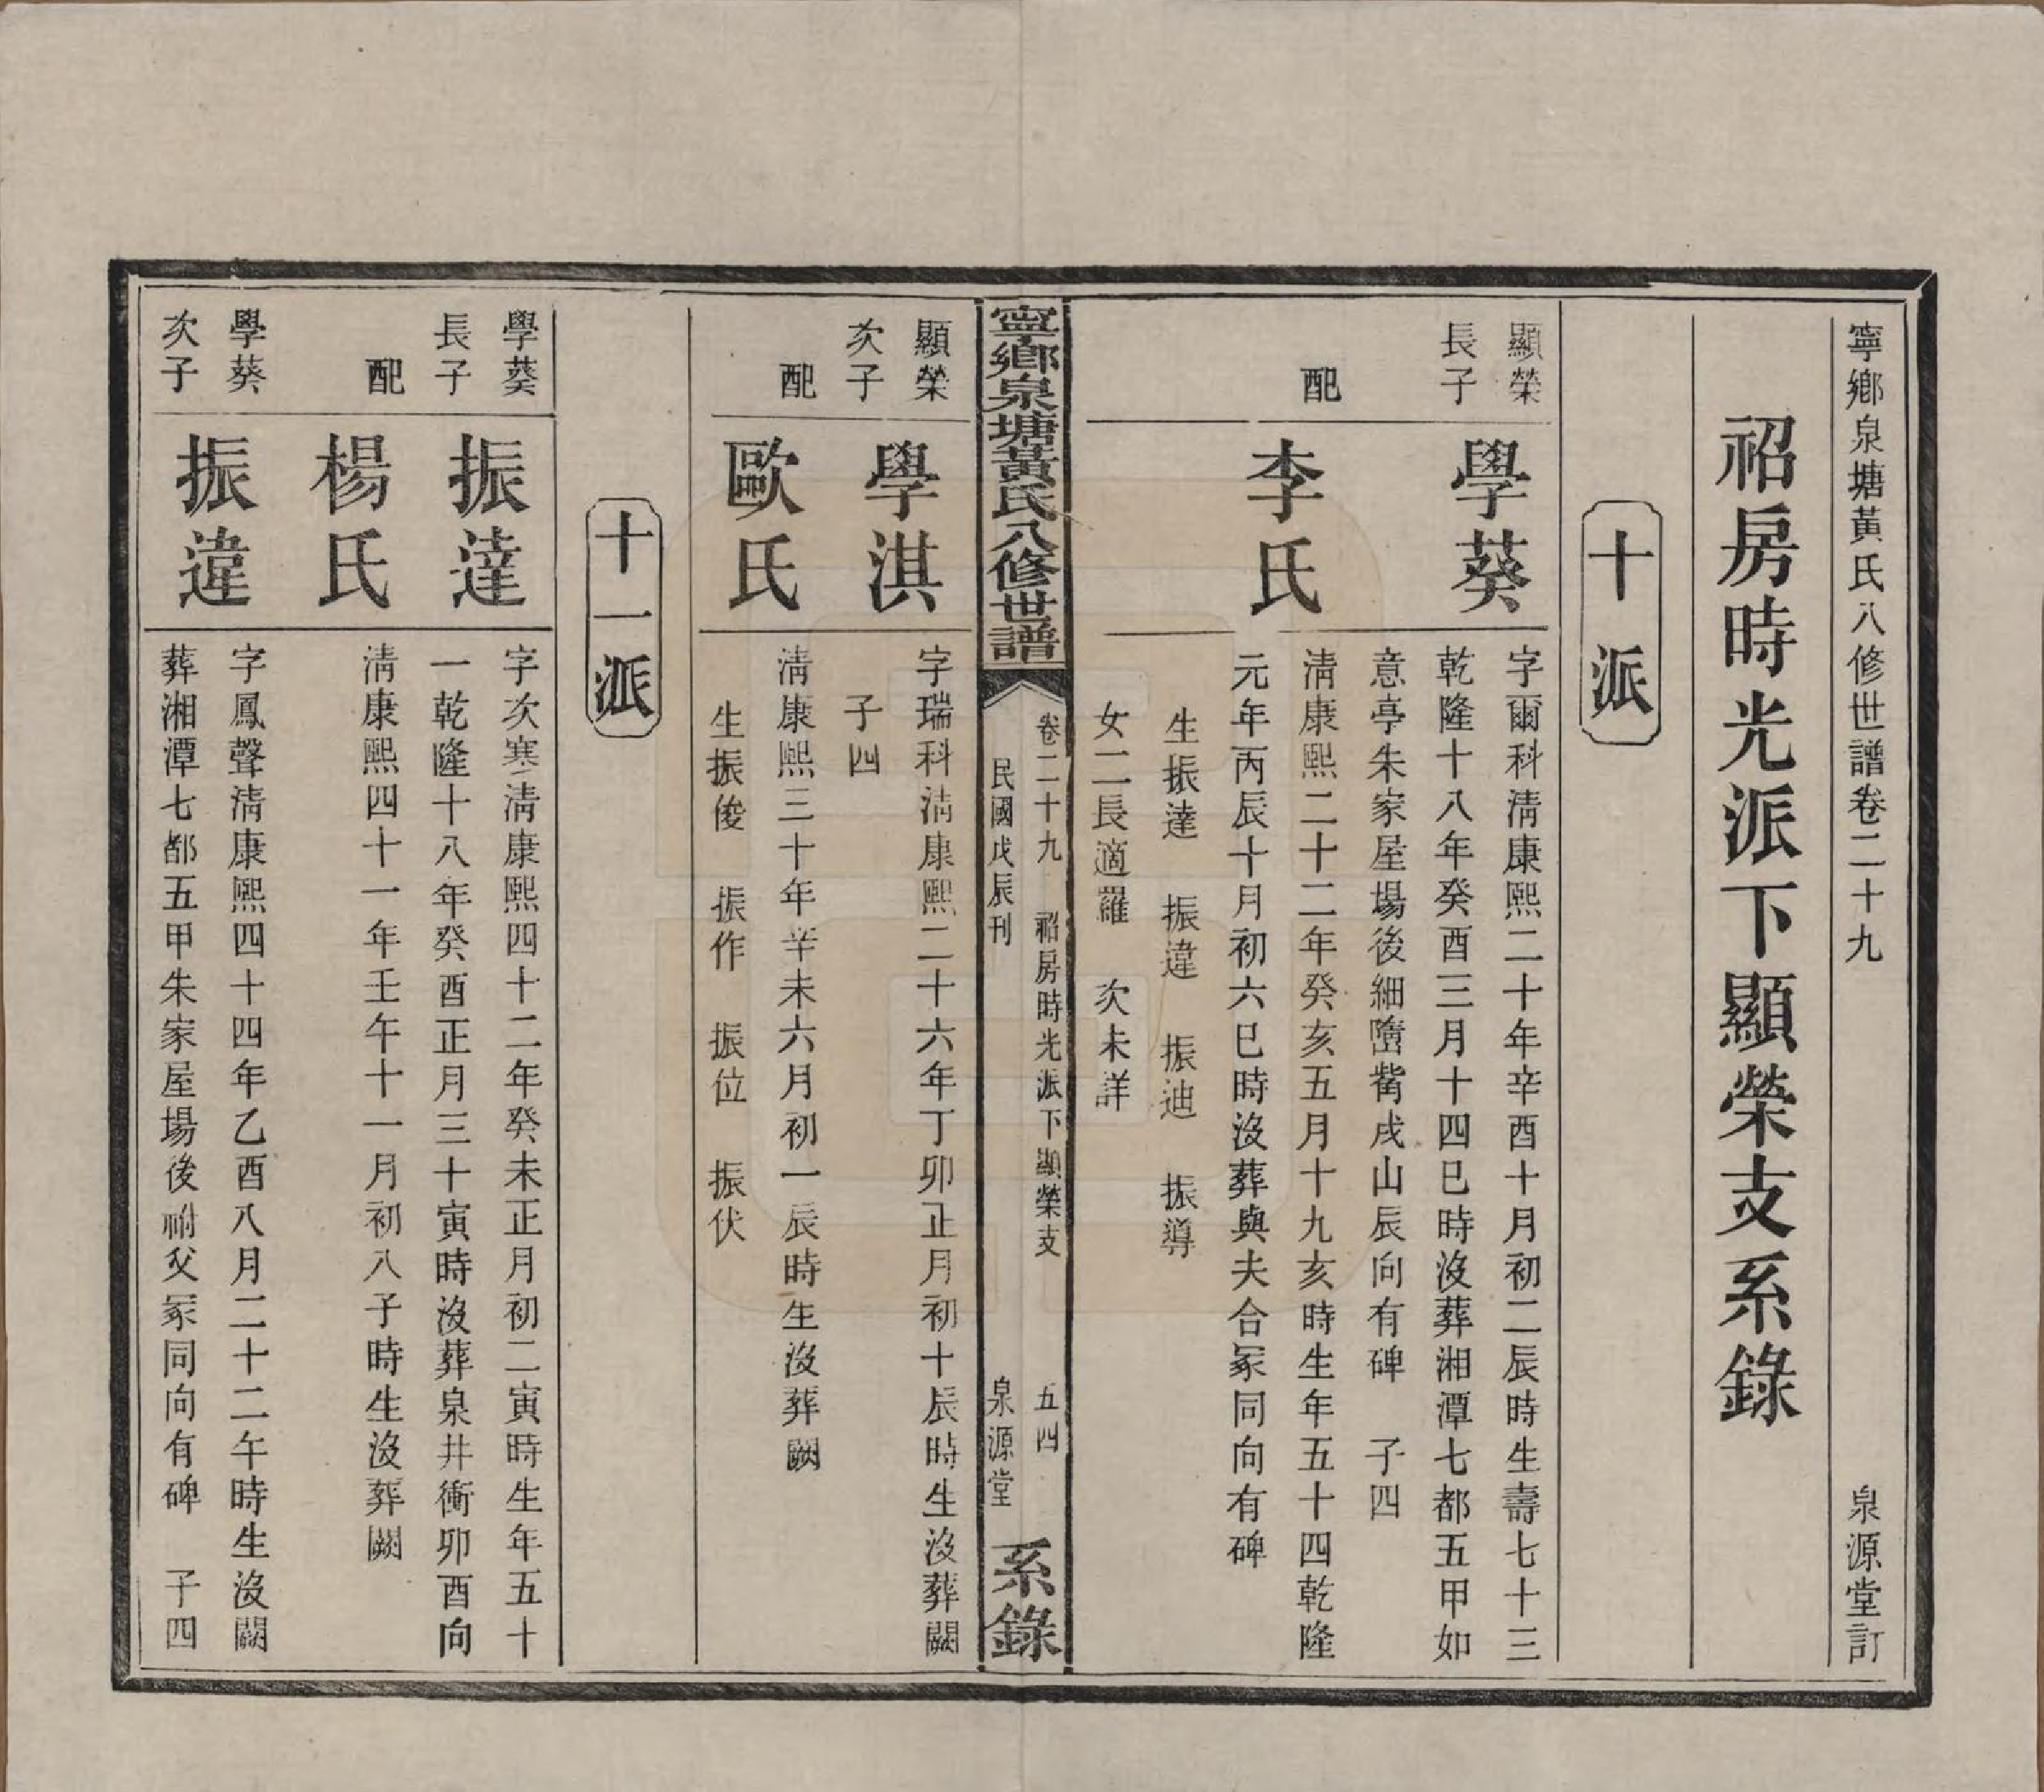 寧鄉泉塘黃氏八修世譜卷二十九 泉源堂訂
祒房時光派下顯榮支系錄
十派
顯榮
長子
學葵
字爾科淸康熙二十年辛酉十月初二辰時生壽七十三
乾隆十八年癸酉三月十四巳時沒葬湘潭七都五甲如
意亭朱家屋場後細㟷觜戌山辰向有碑 子四
配
李氏
淸康熙二十二年癸亥五月十九亥時生年五十四乾隆
元年丙辰十月初六巳時沒葬與夫合冢同向有碑
生振達 振違 振迪 振導
女二長適羅 次未詳
寧鄉泉塘黃氏八修世譜
卷二十九 祒房時光派下顯榮支 五四
民國戊辰刊 泉源堂
系錄
顯榮
次子
學淇
字瑞科淸康熙二十六年丁卯正月初十辰時生沒葬闕
子四
配
歐氏
淸康熙三十年辛未六月初一辰時生沒葬闕
生振俊 振作 振位 振伏
十一派
學葵
長子
振達
字次寒淸康熙四十二年癸未正月初二寅時生年五十
一乾隆十八年癸酉正月三十寅時沒葬泉井衝卯酉向
配
楊氏
淸康熙四十一年壬午十一月初八子時生沒葬闕
學葵
次子
振違
字鳳聲淸康熙四十四年乙酉八月二十二午時生沒闕
葬湘潭七都五甲朱家屋場後祔父冢同向有碑 子四